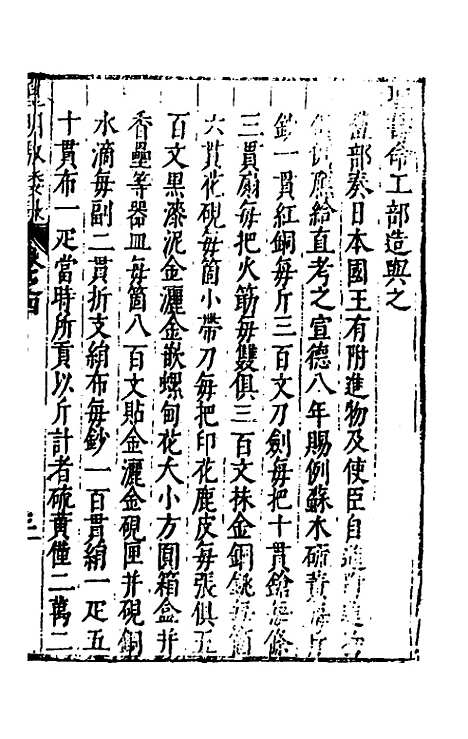 聖旨命工部造與之
當部奏日本國王有附進物及使臣自進附
給直考之宣德八年賜例蘇木硫黃每斤
鈔一貫紅銅每斤三百文刀劍每把十貫鎗每條
三貫扇每把火筯每雙俱三百文抹金銅銚每箇
六貫花硯每箇小帶刀每把印花鹿皮每張俱五
百文黑漆泥金灑金嵌螺甸花大小方圓箱盒并
香壘等器皿每箇八百文貼金灑金硯匣并硯銅
水滴每副二貫折支絹布每鈔一百貫絹一疋五
十貫布一疋當時所貢以斤計者硫黃僅二萬二
皇明馭倭錄
卷之四